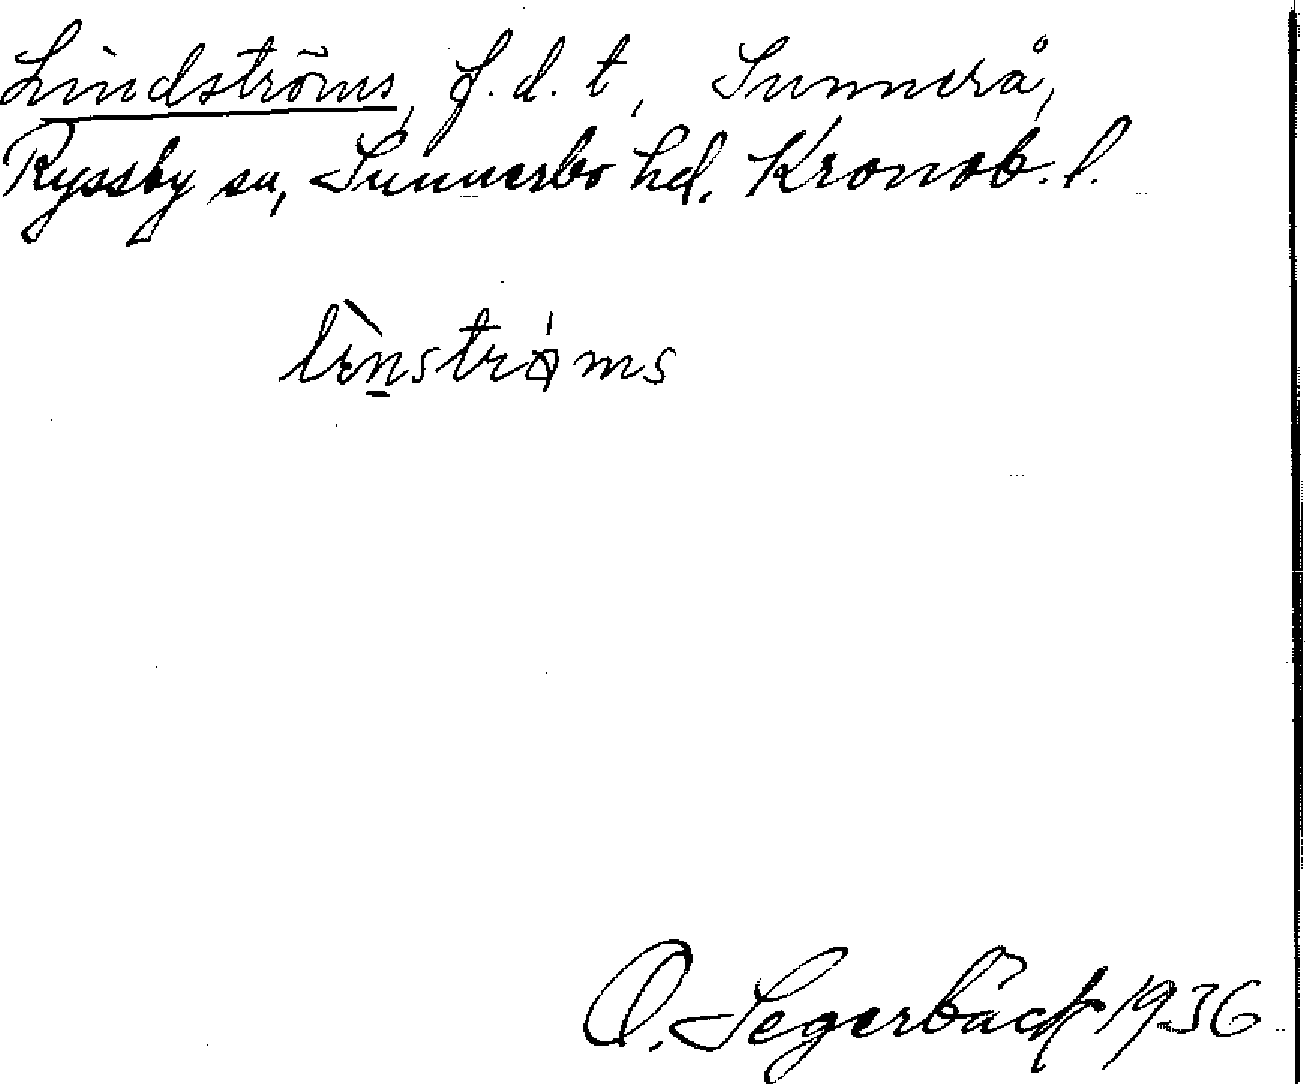 Lindströms, f.d. t, Sunnerå,
Ryssby sn, Sunnerbo hd. Kronob. l.
lìnstrǿms
O. Segerbäck 1936